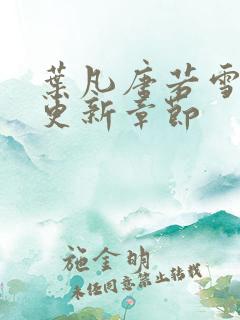 葉凡唐若雪
更新章節
施金明
未经同意禁止转载